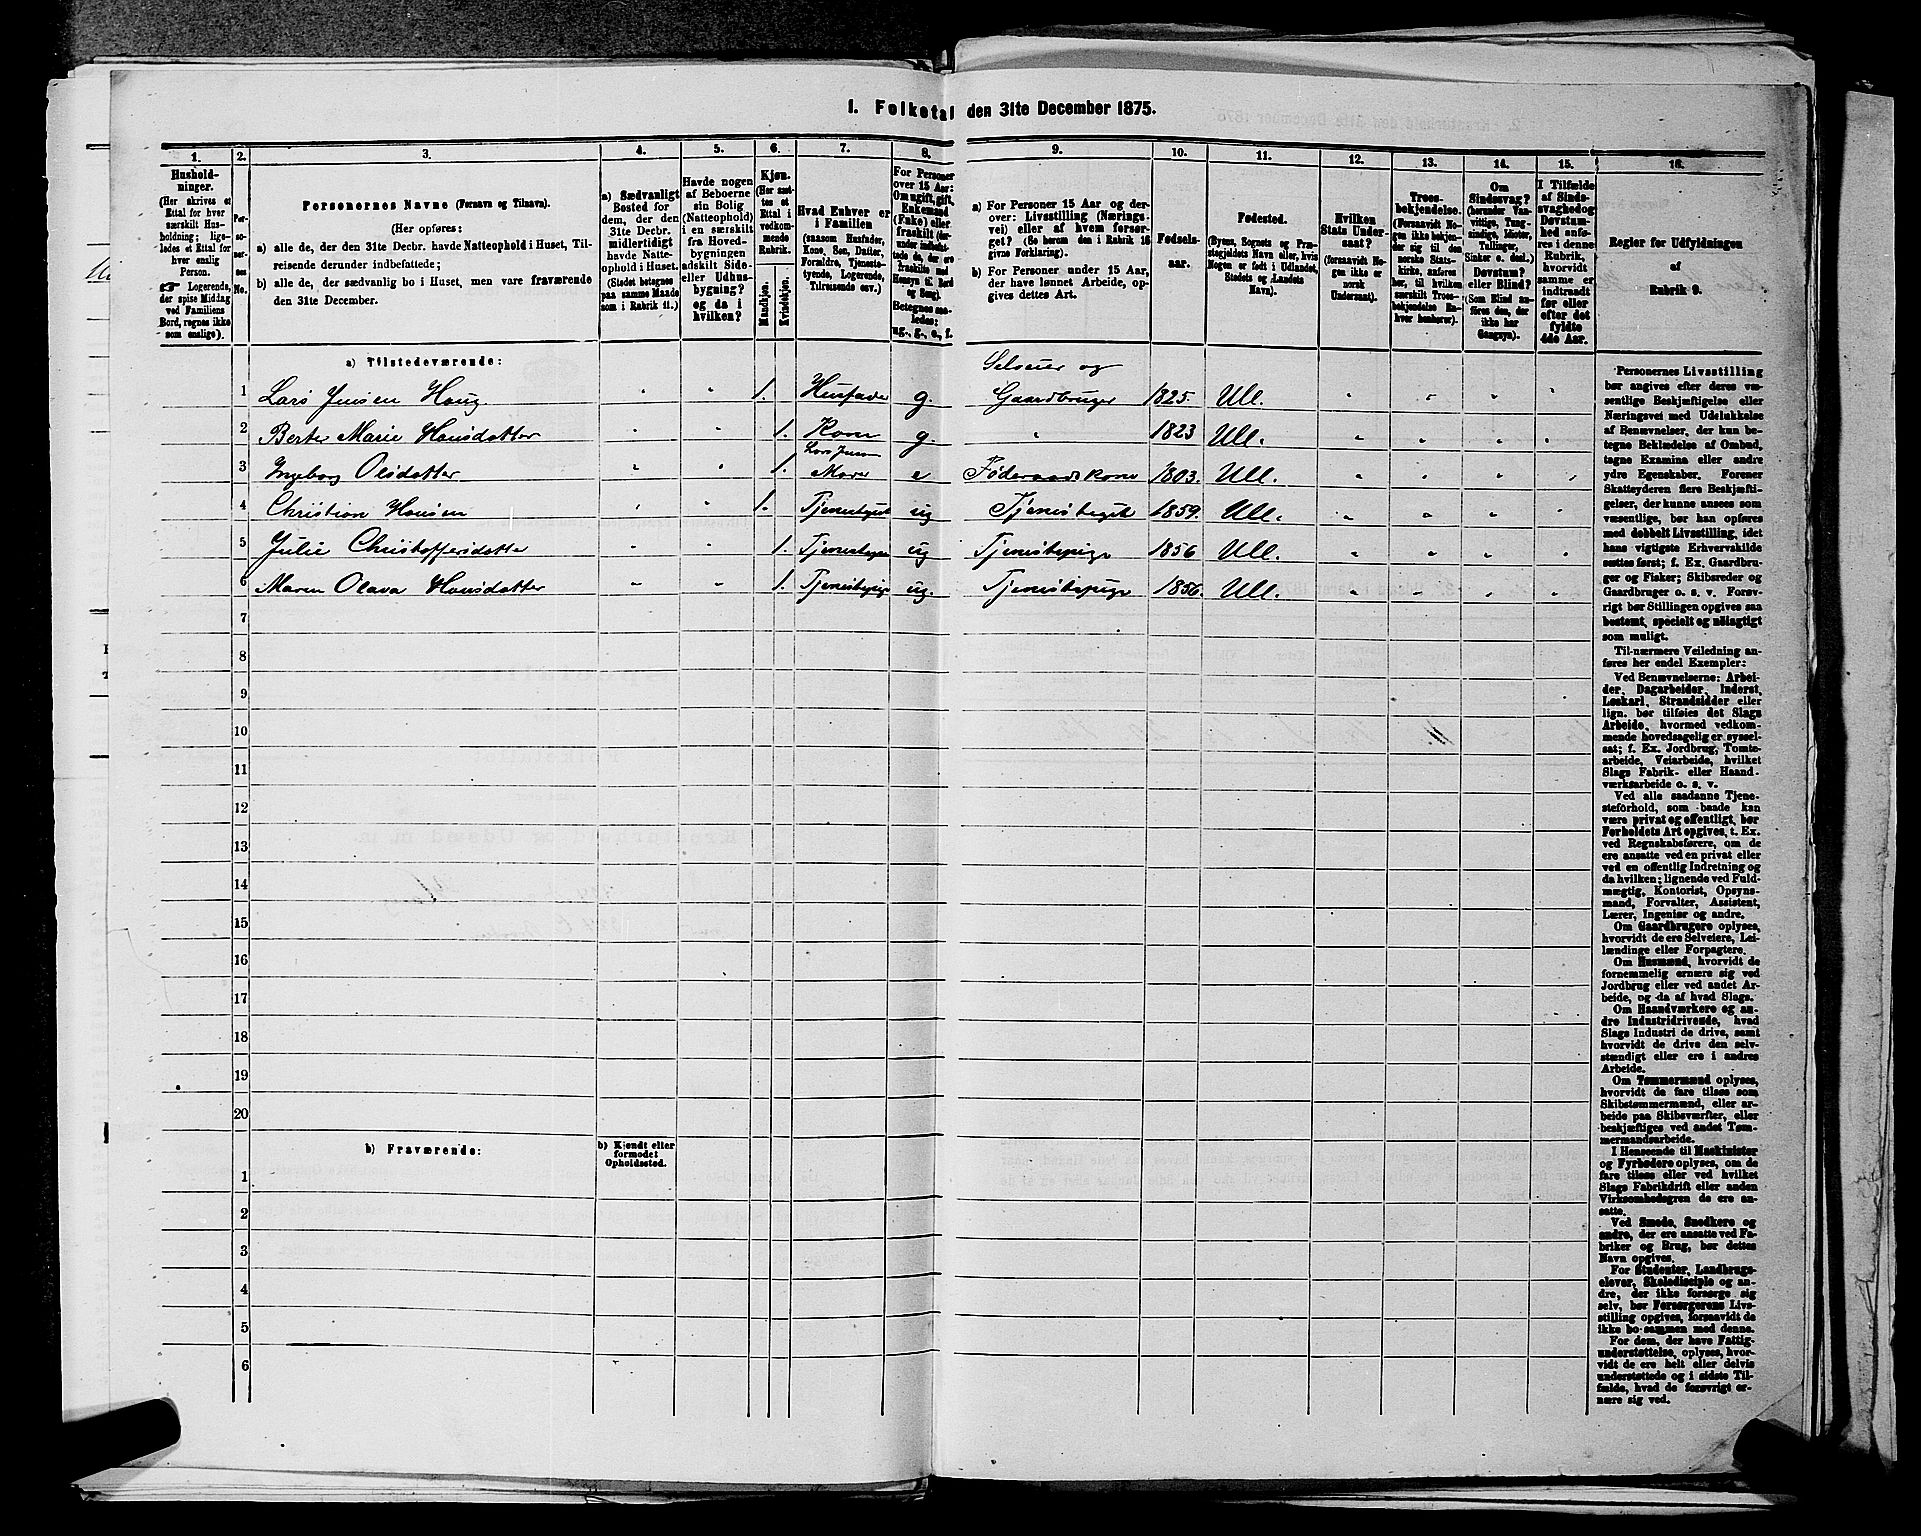 1. Folketal den 31te December 1875.
1.
2.
3.
4.
5.
6.
7.
8.
9.
10.
11.
12.
13.
14.
15.
16.
Hushold-
ninger.
(Her skrives et
Ettal for hver
særskilt Hus-
holdning; lige-
ledes et Ettal for
hver enslig
Person.
☞ Logerende,
der spise Middag
ved Familiens
Bord, regnes ikke
som enslige).
Per-
so-
ner-
nes
No.
Personernes Navne (Fornavn og Tilnavn).
(Her opføres:
a) alle de, der den 31te Decbr. havde Natteophold i Huset, Til-
reisende derunder indbefattede;
b) alle de, der sædvanlig bo i Huset, men vare fraværende
den 31te December.
a) Sædvanligt
Bosted for
dem, der den
31te Decbr.
midlertidigt
havde Natte-
ophold i Huset.
(Stedet betegnes
paa samme Maade
som i Rubrik 11.)
Havde nogen
af Beboerne
sin Bolig
(Natteophold)
i en særskilt
fra Hoved-
bygningen
adskilt Side-
eller Udhus-
bygning?
og da i
hvilken?
Kjøn.
(Her sæt-
tes et
Ettal i
vedkom-
mende
Rubrik.
Mandkjøn.
Kvindekjøn.
Hvad Enhver er
i Familien
(saasom Husfader,
Kone, Søn, Datter,
Forældre, Tjeneste-
tyende, Logerende,
Tilreisende osv.)
For Personer
over 15 Aar:
Om ugift, gift,
Enkemand
(Enke) eller
fraskilt (her-
under indbefat-
tede de, der ere
fraskilte med
Hensyn til Bord
og Seng).
Betegnes saa-
ledes:
ug., g., e., f.
a) For Personer 15 Aar og der-
over: Livsstilling (Nærings-
vei) eller af hvem forsør-
get? (Se herom den i Rubrik 16
givne Forklaring).
b) For Personer under 15 Aar,
der have lønnet Arbeide, op-
gives dettes Art.
Fødsels-
aar.
Fødested.
(Byens, Sognets og Præ-
stegjeldets Navn eller, hvis
Nogen er født i Udlandet,
Stedets og Landets
Navn).
Hvilken
Stats Under-
saat?
(forsaavidt No-
gen ikke er
norsk
Undersaat).
Troes-
bekjendelse.
(Forsaavidt No-
gen ikke bekjen-
der sig til den
norske Stats-
kirke, anføres
her, til hvilken
særskilt Troes-
bekjendelse En-
hver henhører).
Om
Sindssvag?
(herunder Van-
vittige, Tung-
sindige, Idioter,
Tullinger,
Sinker o. desl.)
Døvstum?
eller Blind?
(Som Blind an-
føres den, der
ikke har
Gangsyn).
I Tilfælde
af Sinds-
svaghed og
Døvstum-
hed anfø-
res i denne
Rubrik,
hvorvidt
samme er
indtraadt
før eller
efter det
fyldte
4de Aar.
Regler for Udfyldningen
af
Rubrik 9.
a) Tilstedeværende:
Selveier og
1 Lars Jensen Haug " " 1. Husfader g. Gaardbruger 1825. Ull. " " " "
2 Berte Marie Hansdatter " " 1. Kone g. " 1823 Ull. " " " "
Lars Jensens
3 Ingeborg Olsdatter " " 1. Moder e Føderaadskone 1803. Ull. " " " "
4 Christian Hansen " " 1. Tjenestegut ug Tjenestegut 1859. Ull. " " " "
5 Julie Christoffersdatter " " 1. Tjenestepige ug Tjenestepige 1856 Ull. " " " "
6 Maren Olava Hansdatter " " 1. Tjenestepige ug. Tjenestepige 1856. Ull. " " " "
7
8
9
10
11
12
13
14
15
16
17
18
19
20
b) Fraværende:
b) Kjendt eller
formodet
Opholdssted.
1
2
3
4
5
6
Personernes Livsstilling
bør angives efter deres væ-
sentlige Beskjæftigelse eller
Næringsvei med Udelukkelse
af Benævnelser, der kun be-
tegne Beklædelse af Ombud,
tagne Examina eller andre
ydre Egenskaber. Forener
Skatteyderen flere Beskjæfti-
gelser, der kunne ansees som
væsentlige, bør han opføres
med dobbelt Livsstilling, idet
hans vigtigste Erhvervskilde
sættes først; f. Ex. Gaardbru-
ger og Fisker; Skibsreder og
Gaardbruger o. s. v. Forøv-
rigt bør Stillingen opgives saa
bestemt, specielt og nøiagtigt
som muligt.
Til nærmere Veiledning an-
føres her endel Exempler:
Ved Benævnelserne: Arbei-
der, Dagarbeider, Inderst,
Løskarl, Strandsidder eller
lign. bør tilføies det Slags
Arbeide, hvormed vedkom-
mende hovedsagelig er syssel-
sat; f. Ex. Jordbrug, Tomte-
arbeide, Veiarbeide, hvilket
Slags Fabrik- eller Haand-
værksarbeide o. s. v.
Ved alle saadanne Tjene-
steforhold, som baade kan
være privat og offentligt, bør
Forholdets Art opgives, t. Ex.
ved Regnskabsførere, om de
ere ansatte ved en privat eller
ved en offentlig Indretning og
da hvilken; lignende ved Fuld-
mægtig, Kontorist, Opsyns-
mand, Forvalter, Assistent,
Lærer, Ingeniør og andre.
Om Gaardbrugere oplyses,
hvorvidt de ere Selveiere, Lei-
lændinge eller Forpagtere.
Om Husmænd, hvorvidt de
fornemmelig ernære sig ved
Jordbrug eller ved andet Ar-
beide, og da af hvad Slags.
Om Haandværkere og an-
dre Industridrivende, hvad
Slags Industri de drive, samt
hvorvidt de drive den selv-
stændigt eller ere i andres
Arbeide.
Om Tømmermænd oplyses,
hvorvidt de fare tilsøs som
Skibstømmermænd, eller ar-
beide paa Skibsværfter, eller
beskjæftiges ved andet Tøm-
mermandsarbeide.
I Henseende til Maskinister
og Fyrbødere oplyses, om de
fare tilsøs eller ved hvilket
Slags Fabrikdrift eller anden
Virksomhedsgren de ere an-
satte.
Ved Smede, Snedkere og
andre, der ere ansatte ved Fa-
briker og Brug, bør dettes
Navn opgives.
For Studenter, Landbrugs-
elever, Skoledisciple og an-
dre, der ikke forsørge sig
selv, bør Forsørgerens Livs-
stilling opgives, forsaavidt de
ikke bo sammen med denne.
For dem, der have Fattig-
understøttelse, oplyses, hvor-
vidt de ere helt eller delvis
understøttede og i sidste Til-
fælde, hvad de forøvrigt er-
nære sig ved.